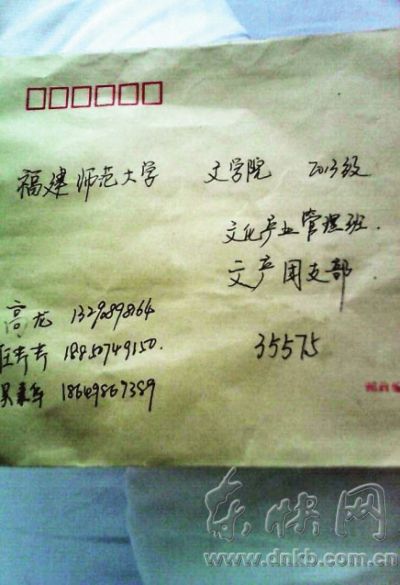 福建师范大学 文学院 2013级
文化产业管理班.
文产团支部
高龙 13298898164
18850749150.
18649867389
35575
东快网
www.dnkb.com.cn